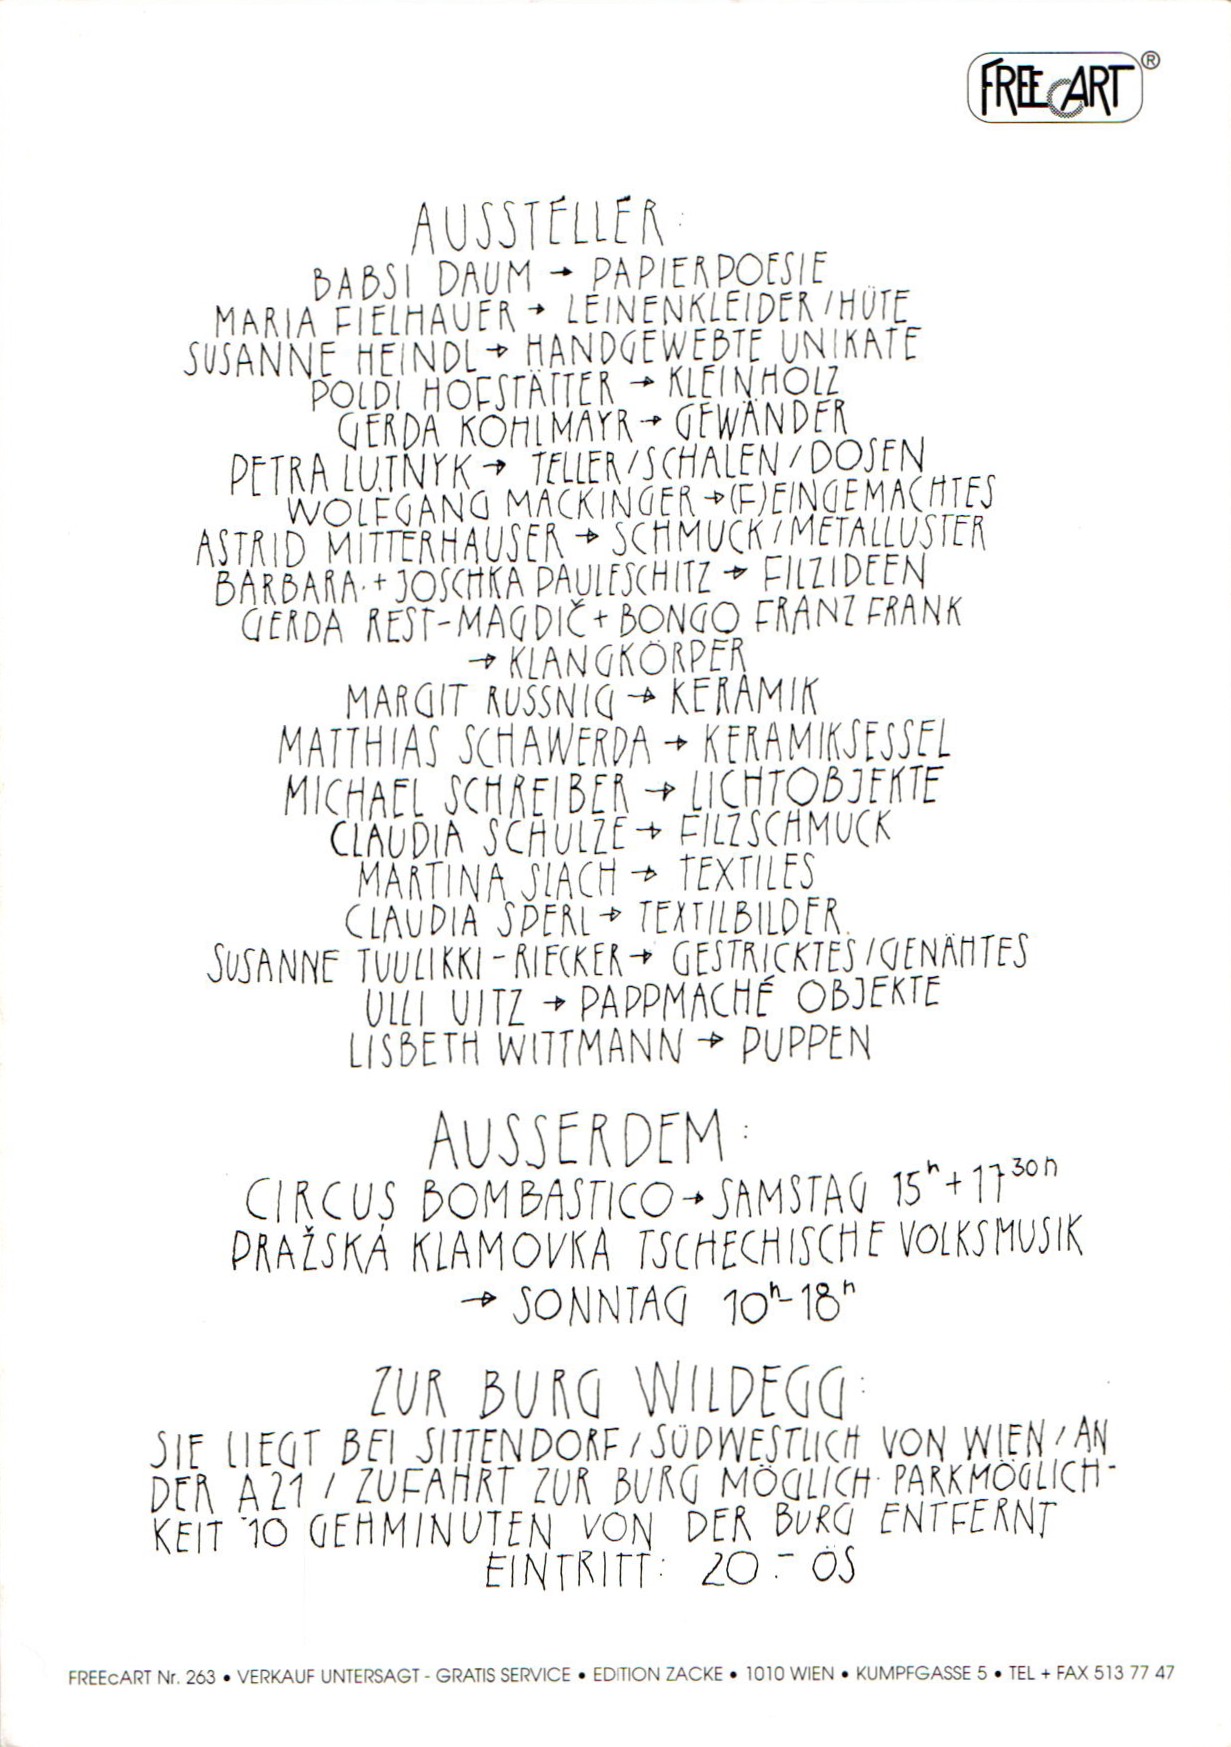 FREEcART ®
AUSSTELLER:
BABSI DAUM → PAPIERPOESIE
MARIA FIELHAUER → LEINENKLEIDER / HÜTE
SUSANNE HEINDL → HANDGEWEBTE UNIKATE
POLDI HOFSTÄTTER → KLEINHOLZ
GERDA KOHLMAYR → GEWÄNDER
PETRA LUTNYK → TELLER / SCHALEN / DOSEN
WOLFGANG MACKINGER → (F)EINGEMACHTES
ASTRID MITTERHAUSER → SCHMUCK / METALLUSTER
BARBARA + JOSCHKA PAULESCHITZ → FILZIDEEN
GERDA REST-MAGDIČ + BONGO FRANZ FRANK
→ KLANGKÖRPER
MARGIT RUSSNIG → KERAMIK
MATTHIAS SCHAWERDA → KERAMIKSESSEL
MICHAEL SCHREIBER → LICHTOBJEKTE
CLAUDIA SCHULZE → FILZSCHMUCK
MARTINA SLACH → TEXTILES
CLAUDIA SPERL → TEXTILBILDER
SUSANNE TUULIKKI-RIECKER → GESTRICKTES / GENÄHTES
ULLI UITZ → PAPPMACHÉ OBJEKTE
LISBETH WITTMANN → PUPPEN
AUSSERDEM:
CIRCUS BOMBASTICO → SAMSTAG 15h + 1730h
PRAŽSKÁ KLAMOVKA TSCHECHISCHE VOLKSMUSIK
→ SONNTAG 10h-18h
ZUR BURG WILDEGG:
SIE LIEGT BEI SITTENDORF / SÜDWESTLICH VON WIEN / AN
DER A21 / ZUFAHRT ZUR BURG MÖGLICH · PARKMÖGLICH-
KEIT 10 GEHMINUTEN VON DER BURG ENTFERNT
EINTRITT: 20.- ÖS
FREEcART Nr. 263 • VERKAUF UNTERSAGT - GRATIS SERVICE • EDITION ZACKE • 1010 WIEN • KUMPFGASSE 5 • TEL + FAX 513 77 47